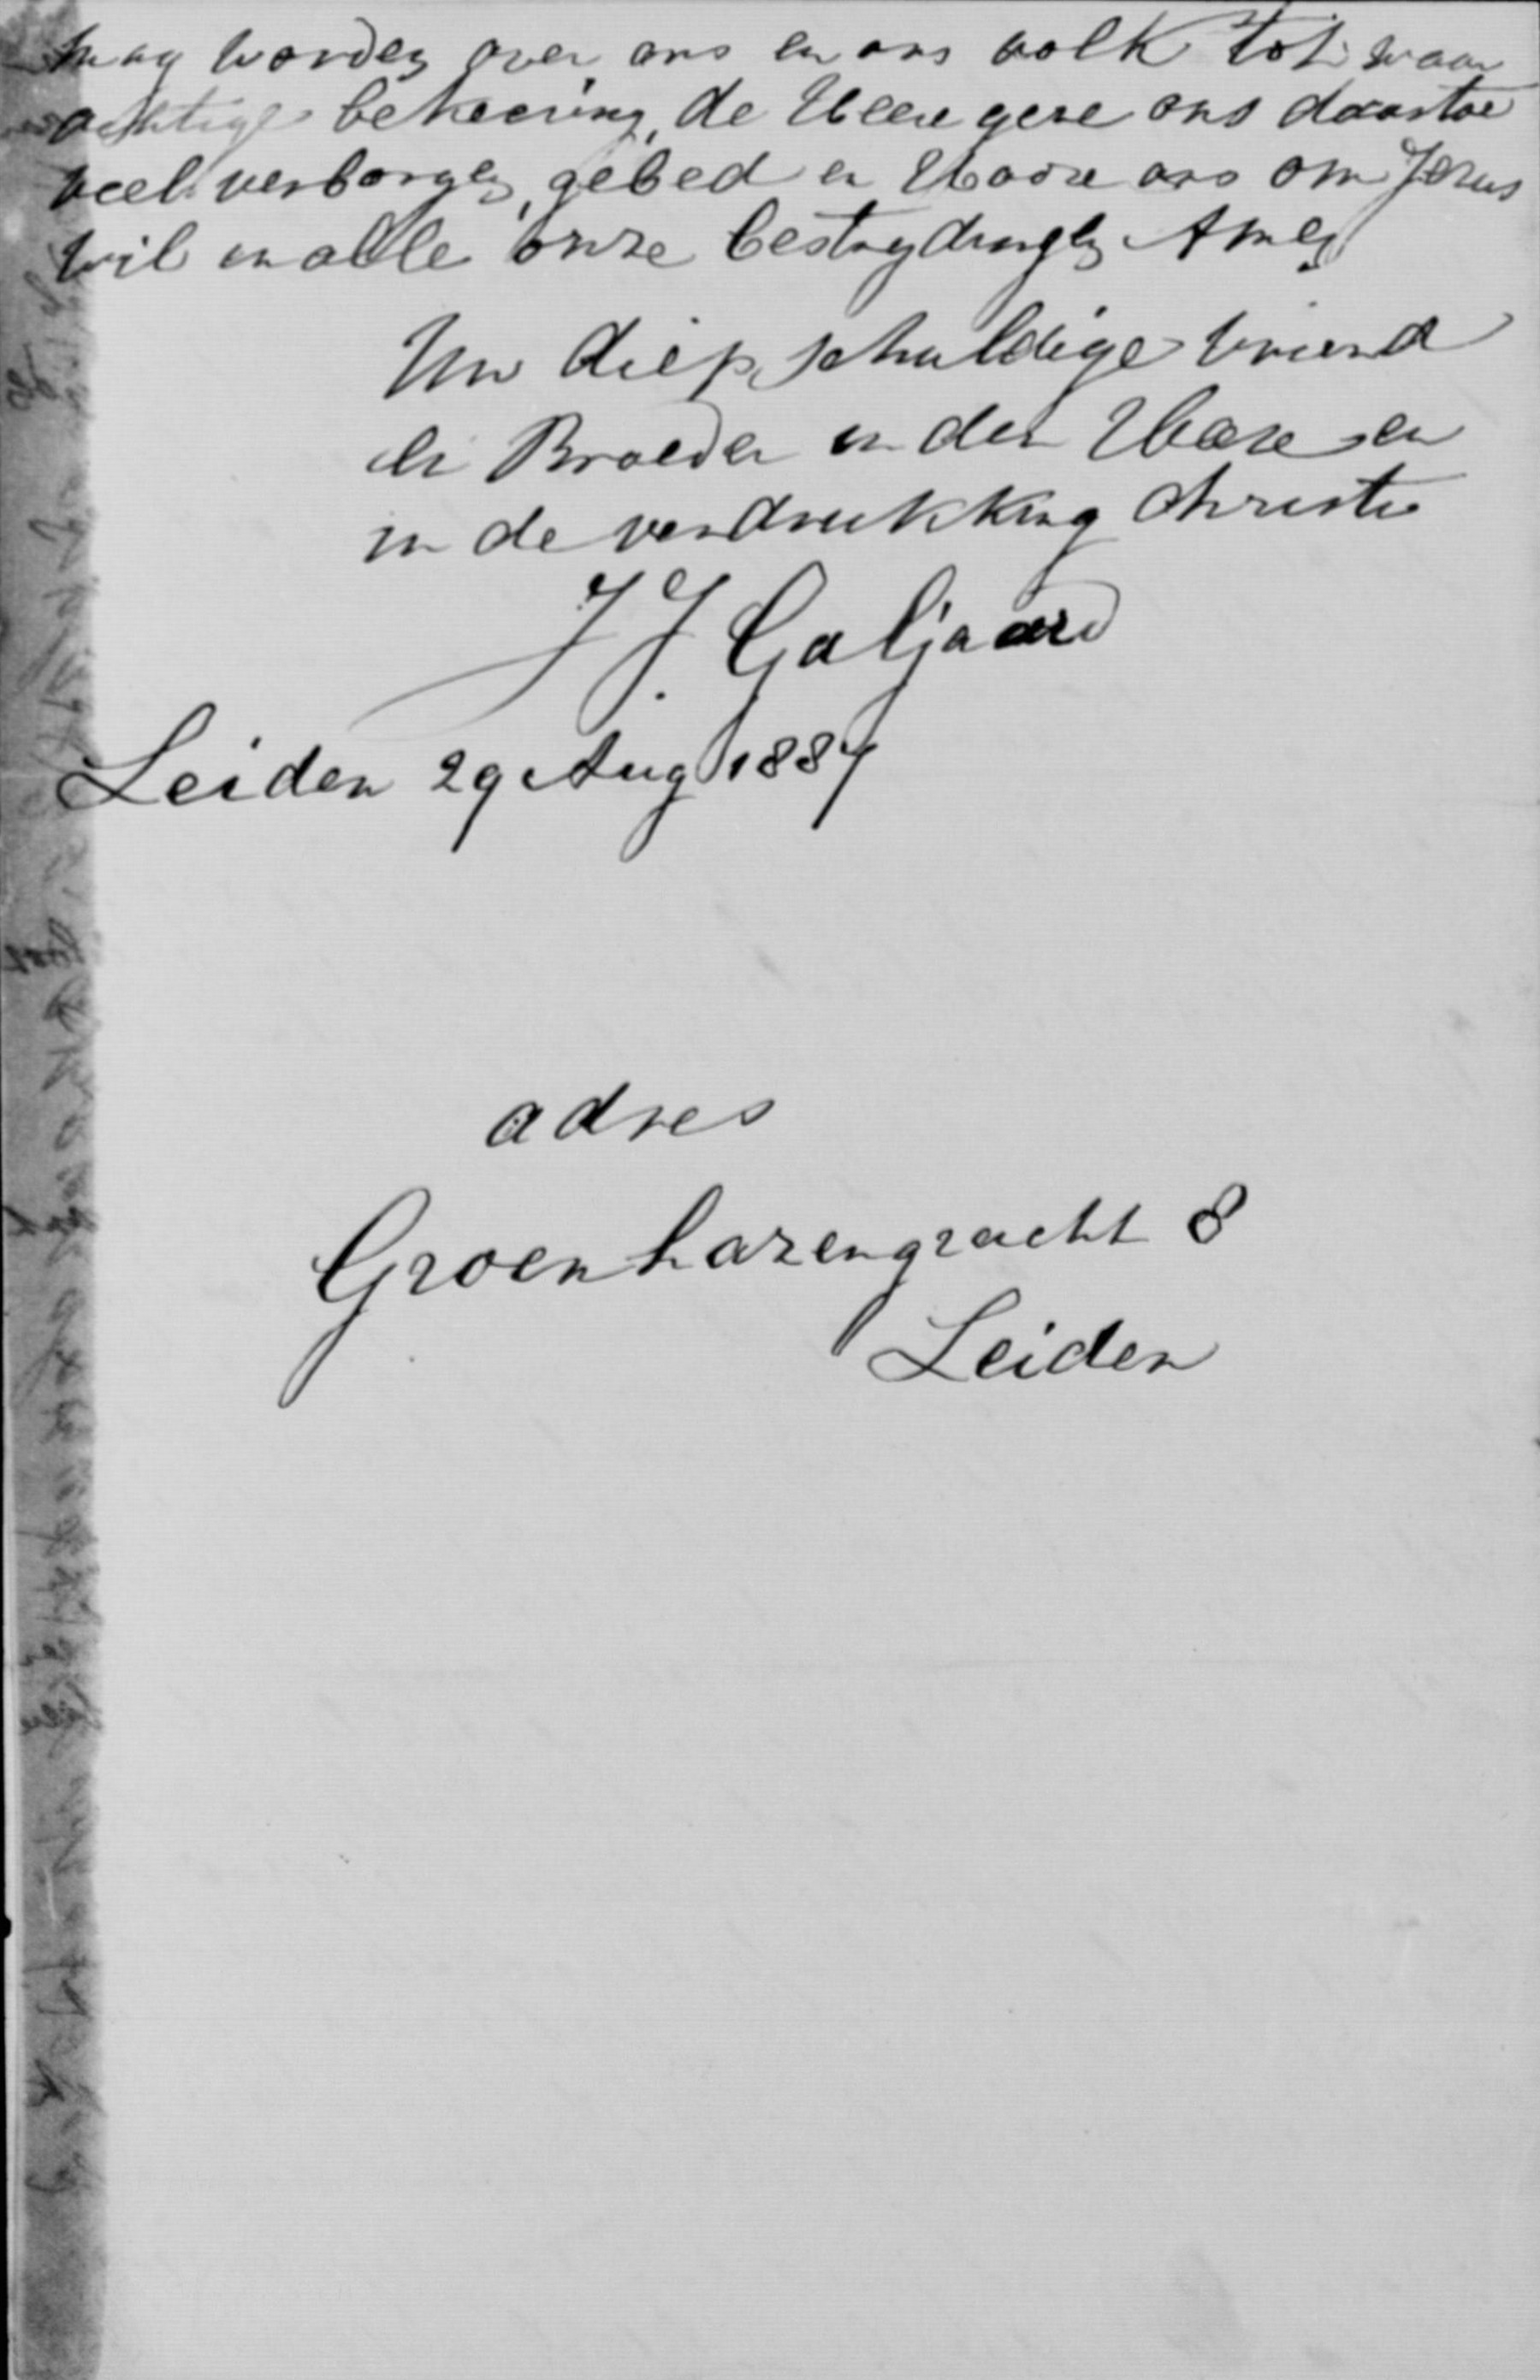 mag worden over ons en ons volk tot waar
achtige bekeering, de Heere geve ons daartoe
veel verborgen gebed en Hoore ons om Jezus
wil in alle onze bestrydingen Amen
Uw diep schuldige vriend
en Broeder in den Heere en
in de verdrukking Christi
J J. Galjaard
Leiden 29 Aug 1887
adres
Groenhazengracht 8
Leiden